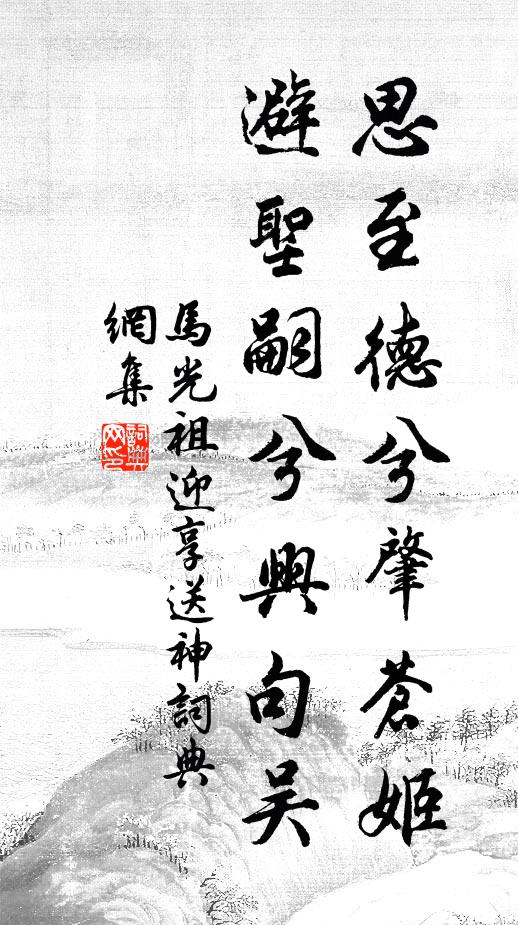 思至德兮肇蒼姬
避聖嗣兮興句吴
馬光祖迎享送神詞典
網集